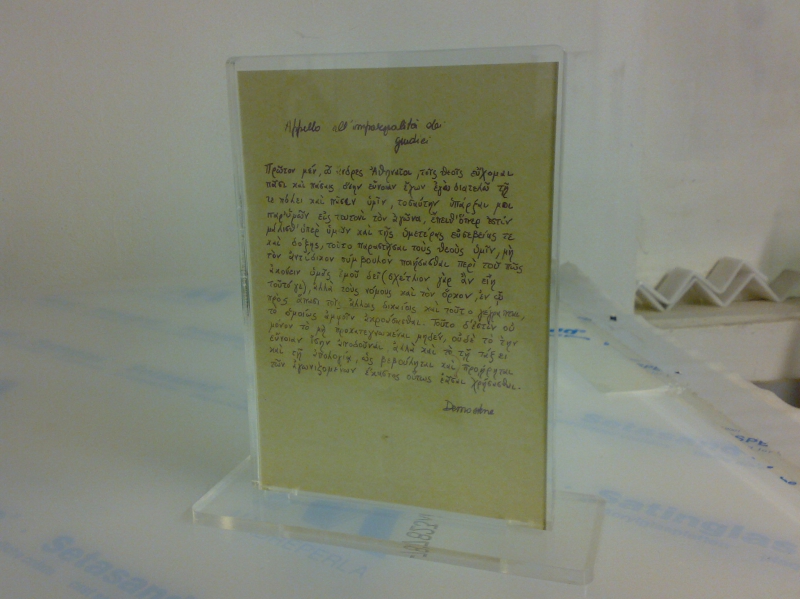 Appello all'imparzialità dei
giudici
Πρῶτον μέν, ὦ ἄνδρες Ἀθηναῖοι, τοῖς θεοῖς εὔχομαι
πᾶσι καὶ πάσαις ὅσην εὔνοιαν ἔχων ἐγὼ διατελῶ τῇ
τε πόλει καὶ πᾶσιν ὑμῖν, τοσαύτην ὑπάρξαι μοι
παρ' ὑμῶν εἰς τουτονὶ τὸν ἀγῶνα, ἔπειθ' ὅπερ ἐστὶν
μάλισθ' ὑπὲρ ὑμῶν καὶ τῆς ὑμετέρας εὐσεβείας τε
καὶ δόξης, τοῦτο παραστῆσαι τοὺς θεοὺς ὑμῖν, μὴ
τὸν ἀντίδικον σύμβουλον ποιήσασθαι περὶ τοῦ πῶς
ἀκούειν ὑμᾶς ἐμοῦ δεῖ (σχέτλιον γὰρ ἂν εἴη
τοῦτό γε), ἀλλὰ τοὺς νόμους καὶ τὸν ὅρκον, ἐν ᾧ
πρὸς ἅπασι τοῖς ἄλλοις δικαίοις καὶ τοῦτο γέγραπται,
τὸ ὁμοίως ἀμφοῖν ἀκροάσασθαι. Τοῦτο δ' ἐστὶν οὐ
μόνον τὸ μὴ προκατεγνωκέναι μηδέν, οὐδὲ τὸ τὴν
εὔνοιαν ἴσην ἀποδοῦναι, ἀλλὰ καὶ τὸ τῇ τάξει
καὶ τῇ ἀπολογίᾳ, ὡς βεβούληται καὶ προῄρηται
τῶν ἀγωνιζομένων ἕκαστος, οὕτως ἐᾶσαι χρήσασθαι.
Demostene
Setasand
PERLA
Satinglas